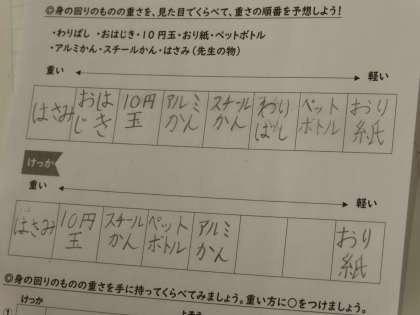 ◎身の回りのものの重さを、見た目でくらべて、重さの順番を予想しよう!
・わりばし ・おはじき・10円玉・おり紙・ペットボトル
・アルミかん・スチールかん・はさみ(先生の物)
重い 軽い
はさみ おはじき 10円玉 アルミかん スチールかん わりばし ペットボトル おり紙
けっか
重い 軽い
はさみ 10円玉 スチールかん ペットボトル アルミかん おり紙
◎身の回りのものの重さを手に持ってくらべてみましょう。重い方に○をつけましょう。
① けっか